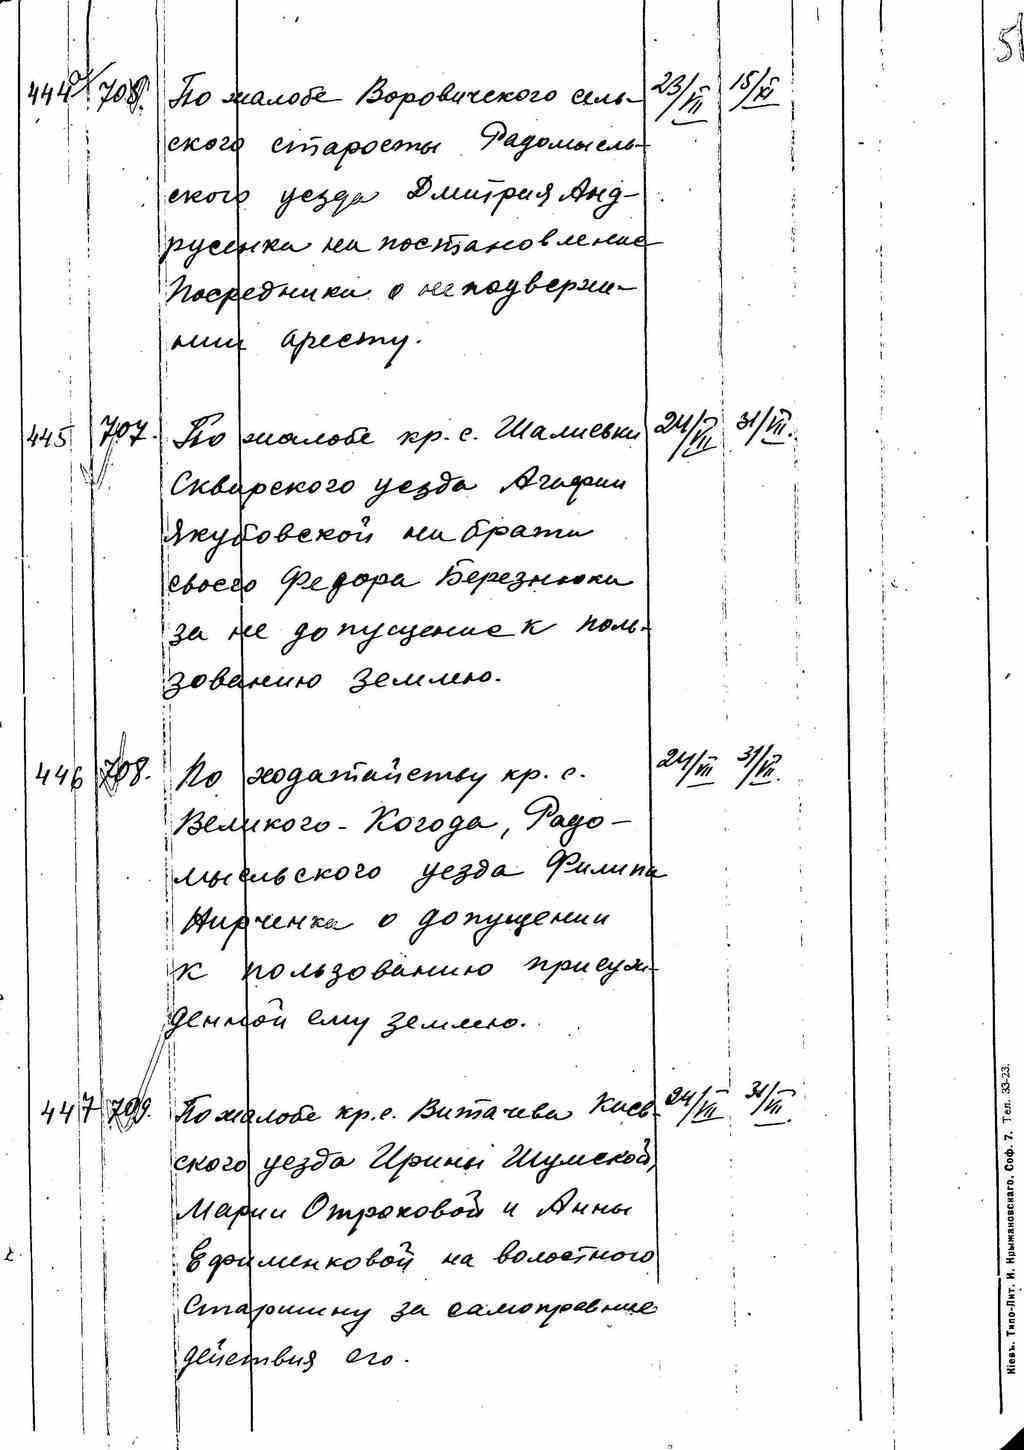 51
444 708. По жалобе Воровичского сель- 23/VII 15/XI
ского старосты Радомысль-
ского уезда Дмитрия Анд-
русенка на постановление
Посредника о неподверже-
нии аресту.
445 707. По жалобе кр. с. Шалиевки 24/VII 31/VII.
Сквирского уезда Агафии
Якубовской на брата
своего Федора Березнюка
за не допущение к поль-
зованию землею.
446 708. По ходатайству кр. с. 24/VII 31/VII.
Великого-Когода, Радо-
мысльского уезда Филипа
Нирченка о допущении
к пользованию присуж-
денной ему землею.
447 709. По жалобе кр. с. Витачева Киев- 24/VII 31/VII.
ского уезда Ирины Шумской,
Марии Отроковой и Анны
Ефименковой на волостного
Старшину за самоправные
действия его.
Кіевъ. Типо-Лит. И. Крыжановскаго. Соф. 7. Тел. 33-23.